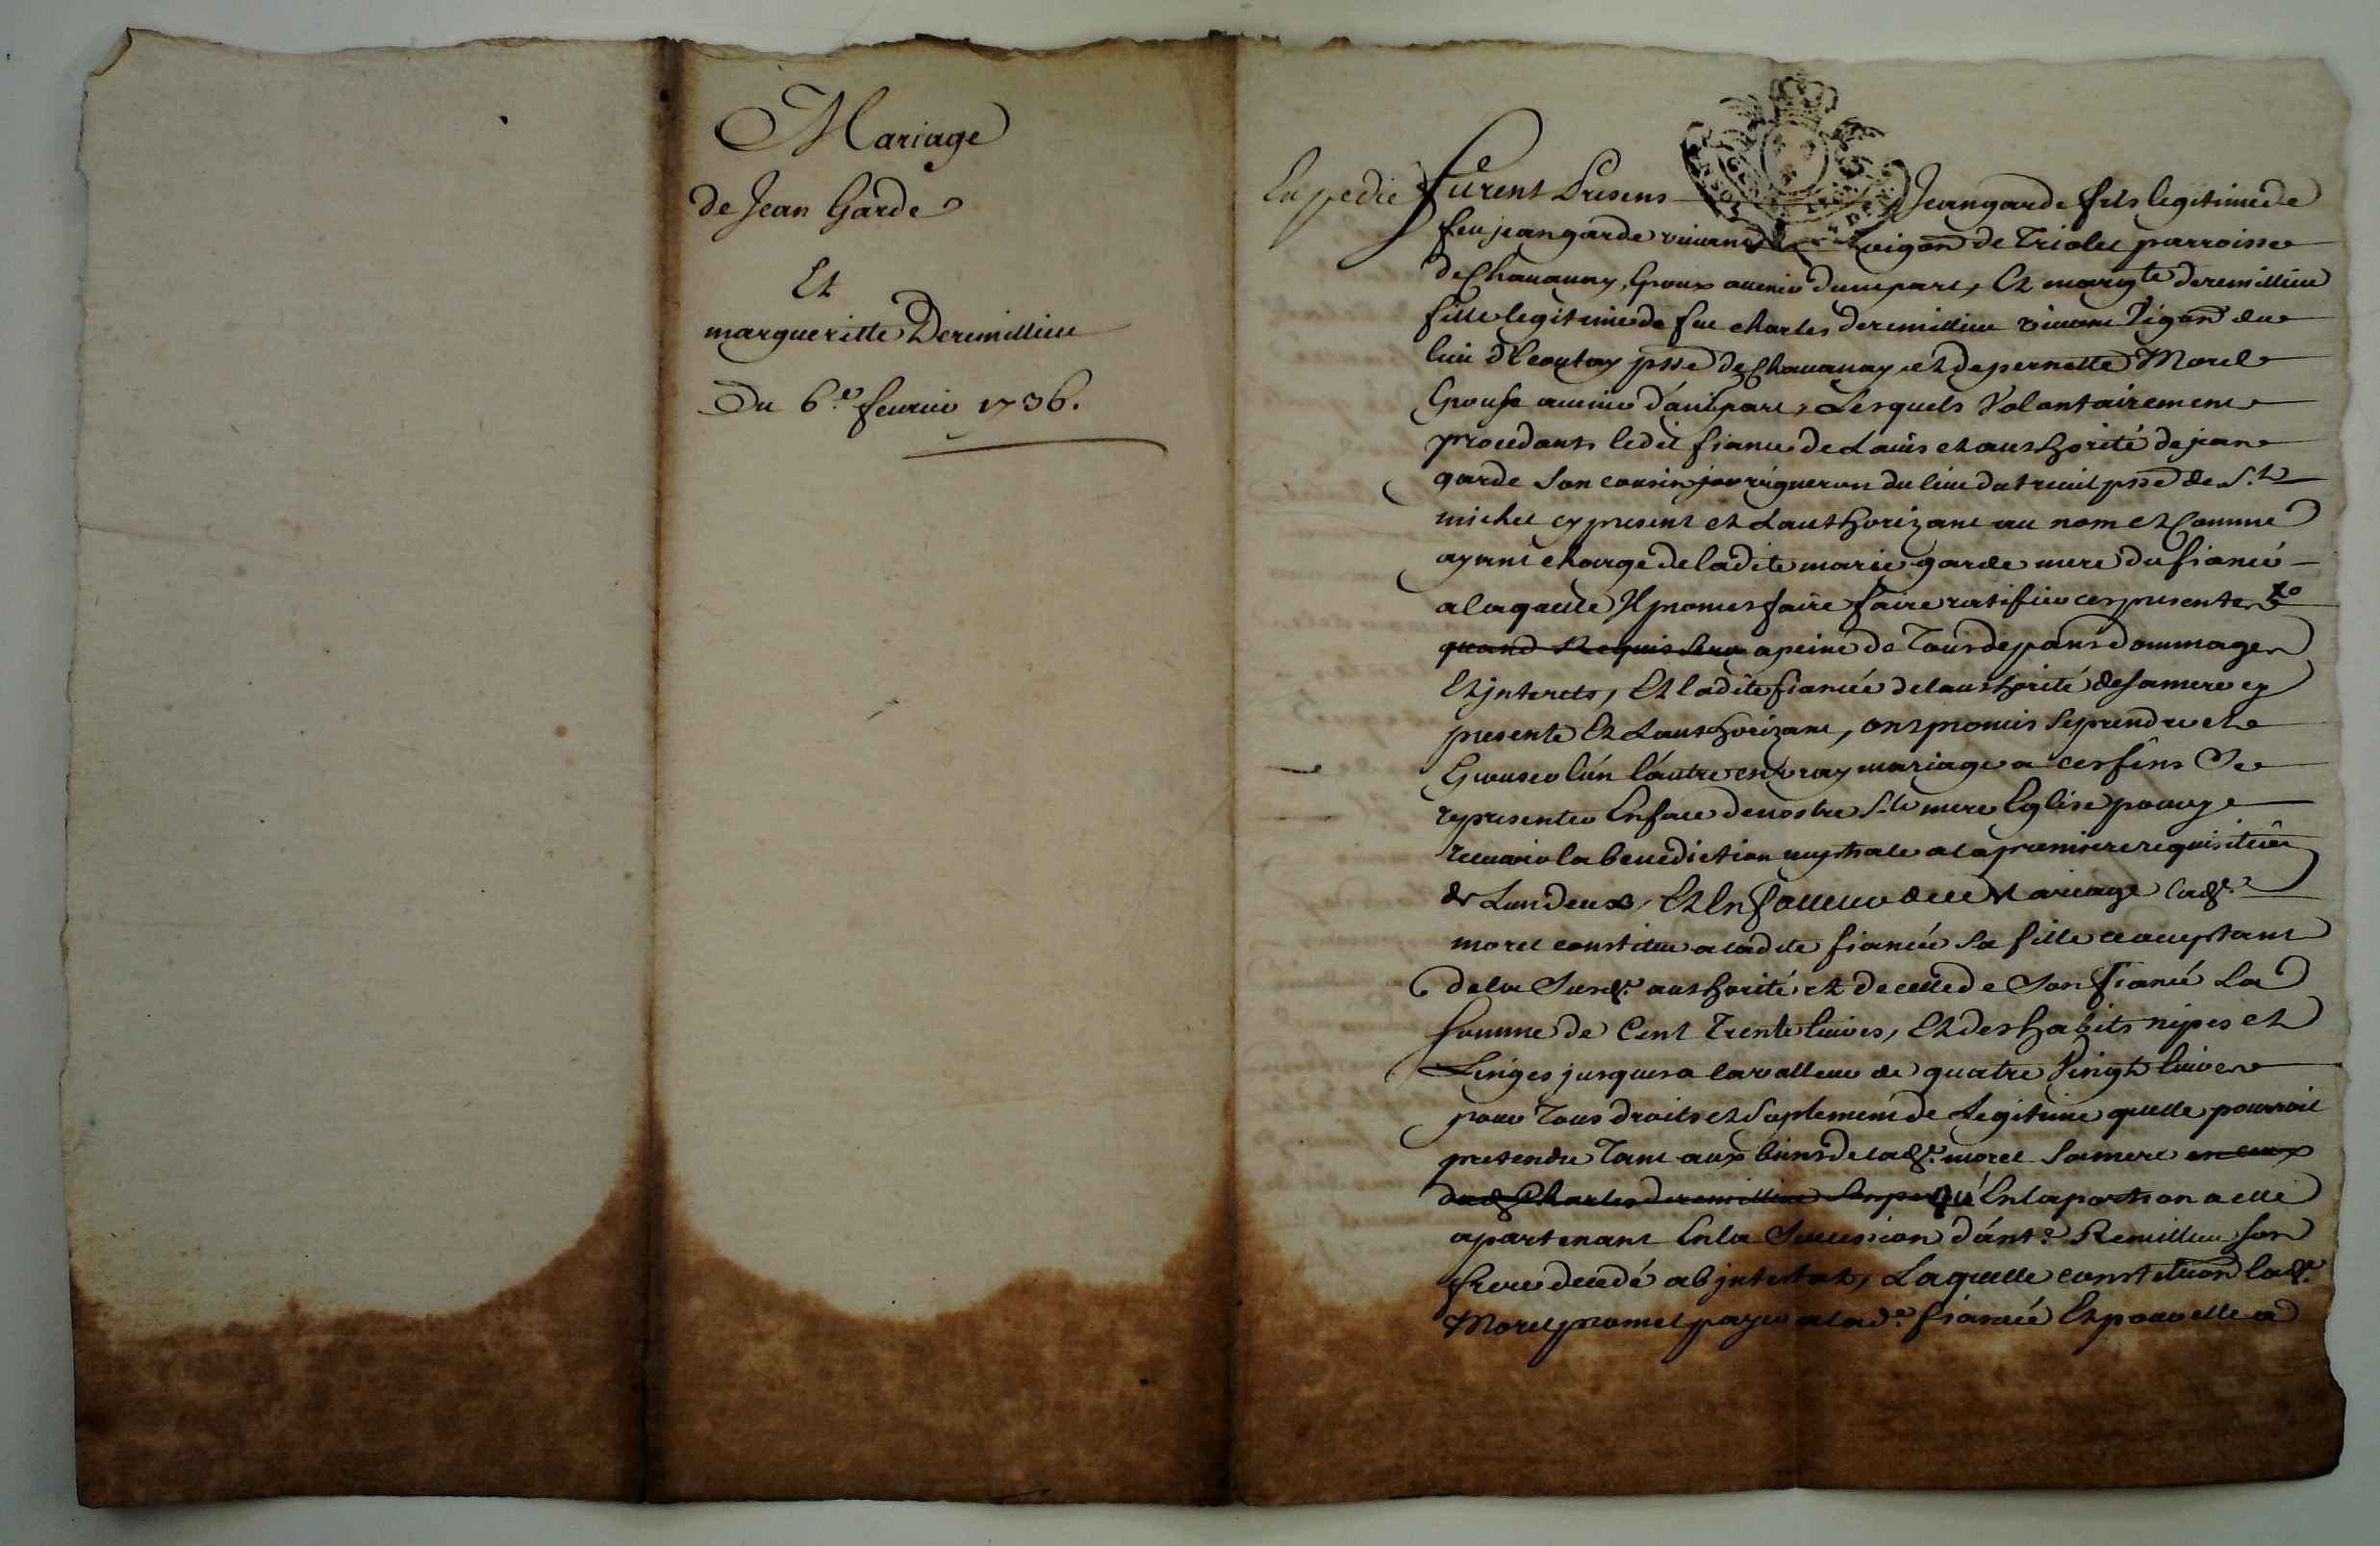 Mariage
de Jean Garde
Et
margueritte Deremillieu
Du 6.e feurier 1736.
Expedié
furent Presens Jean garde fils legitime de
feu jean garde viuant vigon de Triolet parroisse
de Chauanay, Epoux auenir dune part, Et margte deremillieu
fille legitime de feu charles deremillieu viuant Vigon du
lieu psse de Chauanay et de pernette Morel
Epouse auenir d'autpart, Lesquels Volontairement
procedants ledit fiancé de Lauis et authorité de jean
garde Son cousin vigneron du lieu du treuil psse de St
michel cy present et Lauthorizant au nom et Comme
ayant charge de ladite marie garde mere du fiancé
a laquelle Il promet faire faire ratifier ces presentes
quand Requis Sera a peine de Tous depans dommages
Et jnterets, Et ladite fiancée de lauthorité de sa mere cy
presente Et Lauthorizant, ont promis Se prendre et
Epouser lún láutre en vray mariage a ces fins Se
representer En face de nostre Ste mere Eglise pour y
receuoir la benediction nuptiale a la premiere requisition
de Lun deux, Et En faueur de ce Mariage lade
morel constitue a ladite fiancée Sa fille acceptant
de la Susde authorité et de celle de Son fiancé La
somme de Cent Trente liures, Et des habits nipes et
Linges jusques a la valleur de quatre Vingt liures
pour Tous droits et Suplement de Legitime quelle pourroit
pretendre Tant aux biens de lade morel Sa mere en ceux
dud Charles deremillieu Son pere En la portion a elle
apartenant En la Succession d'ánte Remillieu son
frere decedé ab jntestat, Laquelle constitution lade
Morel promet payer a lade fiancée Et pour elle a